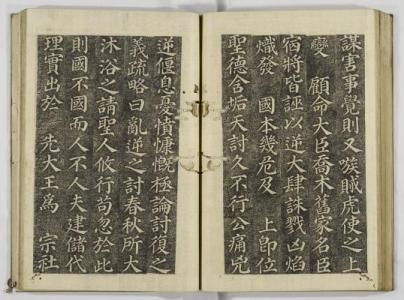 謀害事覺則又嗾賊虎使之上
變 顧命大臣喬木舊家名臣
宿將皆誣以逆大肆誅戮凶焰
熾發 國本幾危及 上卽位
聖德含垢天討久不行公痛兇
逆偃息憂憤慷慨極論討復之
義疏略曰亂逆之討春秋所大
沐浴之請聖人攸行苟忽於此
則國不國而人不人夫建儲代
理實出於 先大王爲 宗社